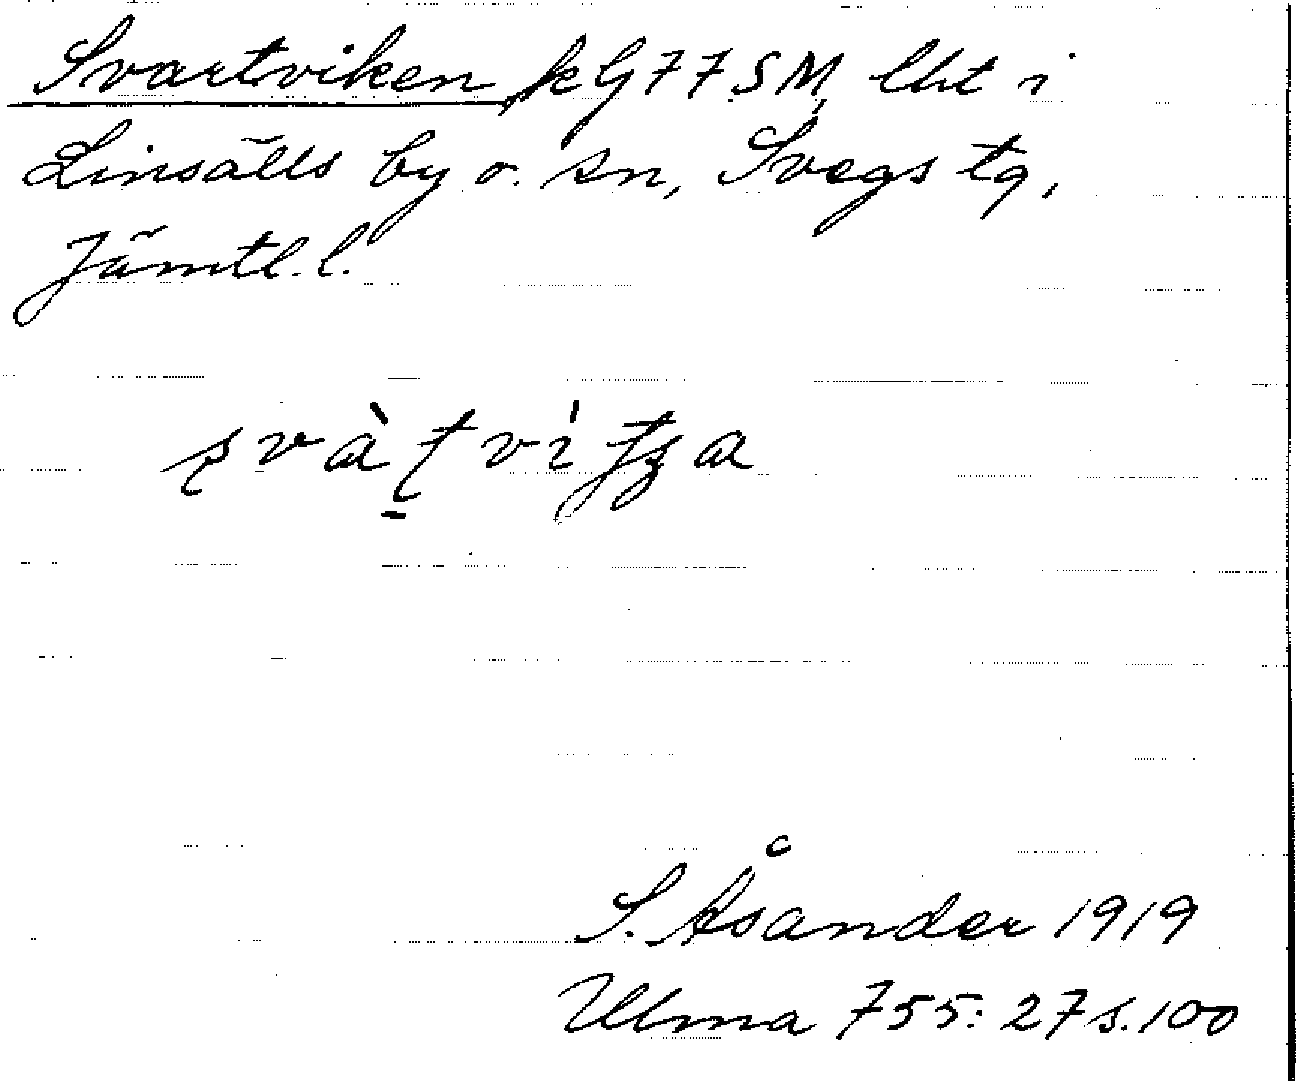 Svartviken kG77SM, lht i
Linsälls by o. sn, Svegs tg,
Jämtl. l.
S. Åsander 1919
Ulma 755: 27 s. 100